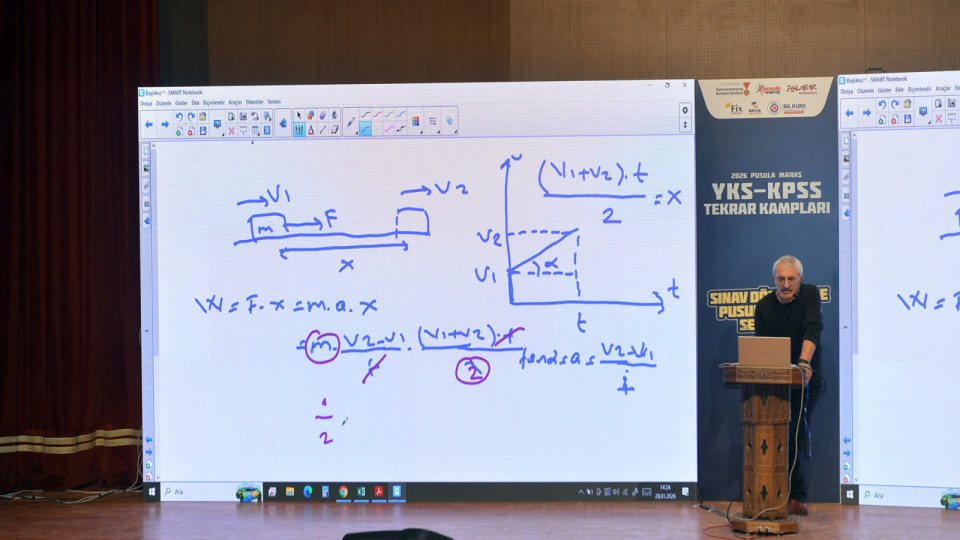 Başlıksız * - SMART Notebook
Dosya Düzenle Göster Ekle Biçimlendir Araçlar Eklentiler Yardım
V1
m
F
V2
x
W = F.x = m.a.x
= m. V2-V1 / t . (V1+V2).t / 2
1
2
v
(V1+V2).t / 2 = x
V2
V1
α
t
t
a = V2-V1 / t
Ara
14:34
28.01.2026
Fix
BİL KURS
2026 PUSULA MARAŞ
YKS-KPSS
TEKRAR KAMPLARI
SINAV
PUSU
SE
Başlıksız * - SMART Notebook
Dosya Düzenle Göster Ekle Biçimlendir Araçlar
W =
Ara